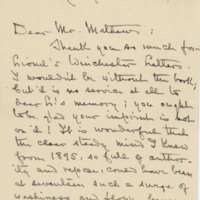 Dear Mr. Mathews:
Thank you so much for
Lionel's Winchester Letters.
I wouldn't be without the book,
but it's no service at all to
dear Li's memory; you ought
to be glad your imprint is not
on it! It is wonderful that
the clear steady mind I knew
from 1895, so full of author-
ity and repose, could have been
at seventeen such a surge of